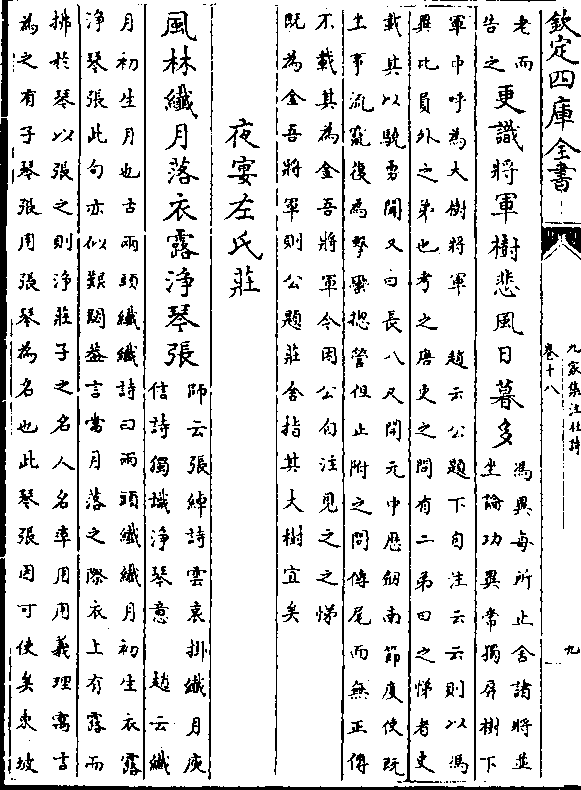 欽定四庫全書
九家集注杜詩
卷十八
九
老而
告之
更識將軍樹悲風日暮多
馮異每所止舍諸將並
坐論功異常獨屏樹下
軍中呼為大樹將軍　趙云公題下自注云云則以馮
異比員外之弟也考之唐史之問有二弟曰之悌者史
載其以驍勇聞又曰長八尺開元中歷劒南節度使既
坐事流竄復為擊蠻揔管但止附之問傳尾而無正傳
不載其為金吾將軍今因公自注見之之悌
既為金吾將軍則公題莊舍指其大樹宜矣
夜宴左氏莊
風林纖月落衣露淨琴張
師云張綽詩雲裏掛纖月庾
信詩獨識淨琴意　趙云纖
月初生月也古兩頭纖纖詩曰兩頭纖纖月初生衣露
淨琴張此句亦似艱闕葢言當月落之際衣上有露而
拂於琴以張之則淨莊子之名人名率用用義理寓言
為之有子琴張用張琴為名也此琴張因可使矣東坡